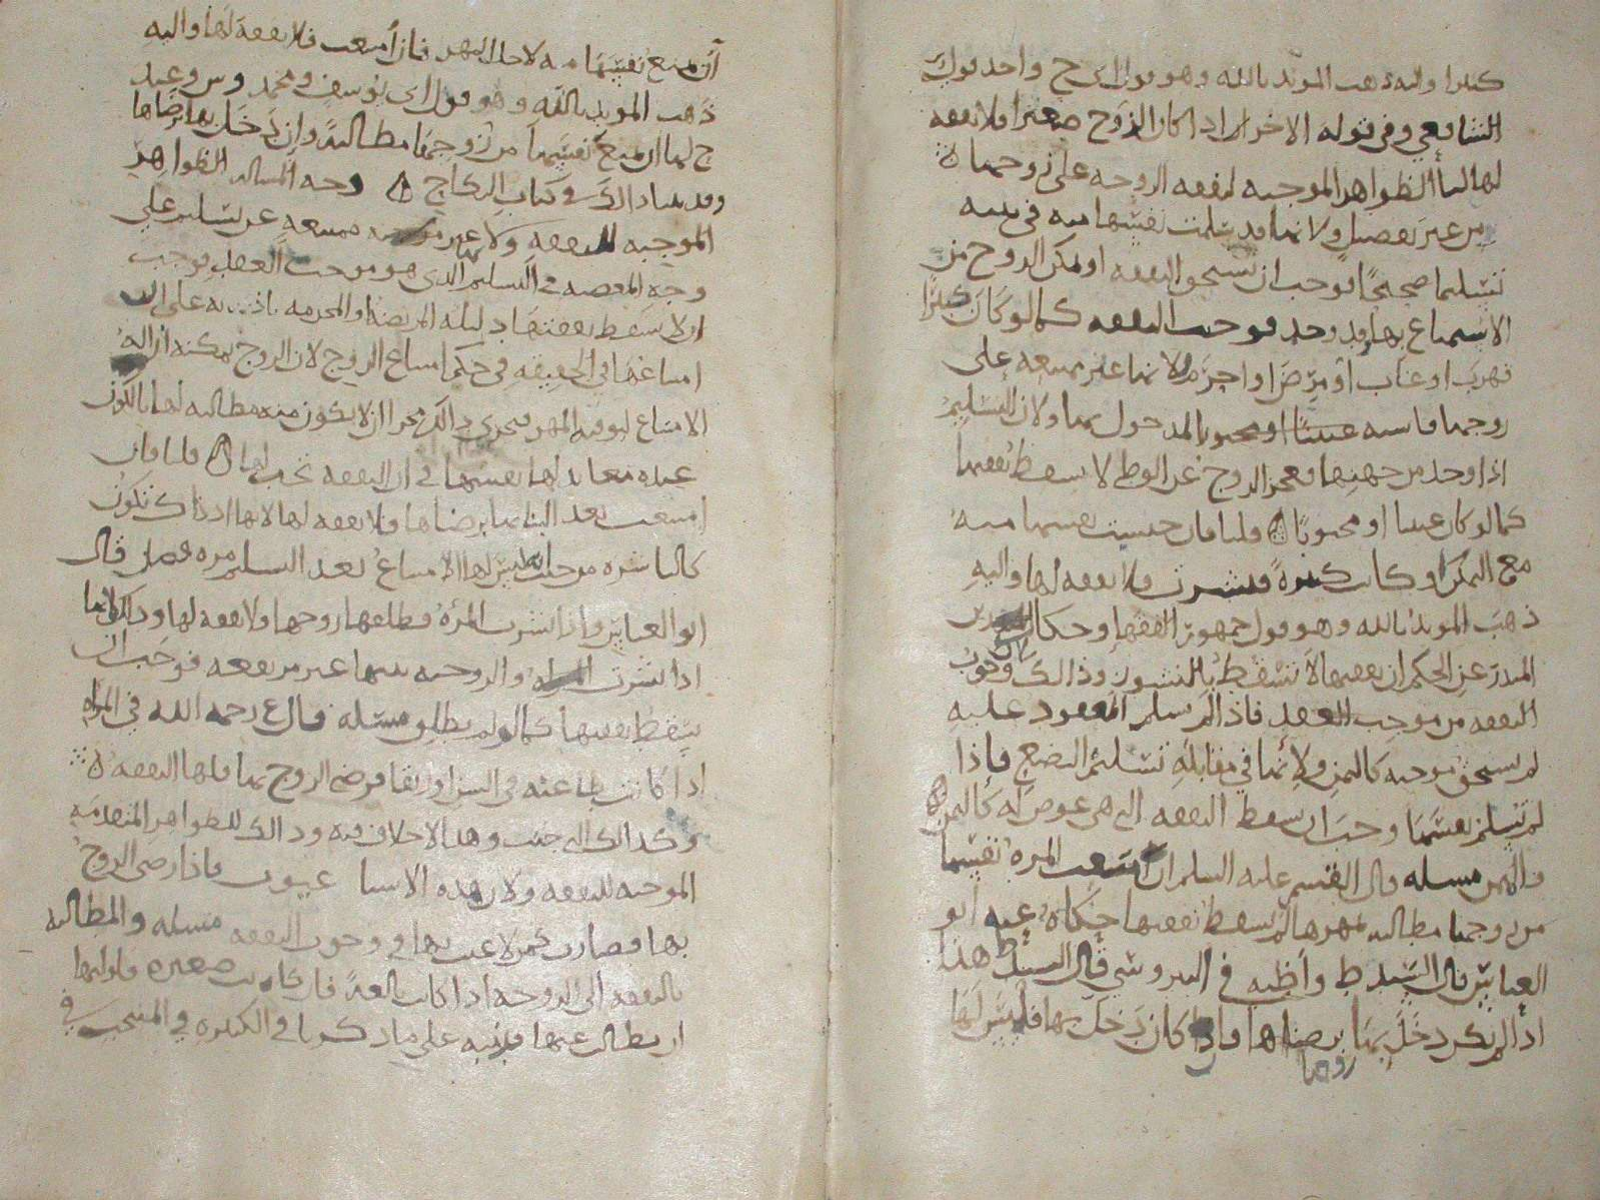 كبيرا واليه ذهب المويد بالله وهو قول اي ح واحد قولي
الشافعي وفي قوله الاخر ان اذا كان الزوج صغيرا فلا نفقه
لها لنا الظواهر الموجبه لنفقه الزوجه على زوجها
من غير تفصيل ولانها قد سلمت نفسها منه في بيته
تسليما صحيحًا فوجب ان تستحق النفقه اولم يكن الزوج من
الاستمتاع بها وقد وجد فوجبت النفقه كما لو كان كبيرًا
فهرب او غاب او مرض او اجرم ولانها غير ممتنعه على
زوجها فاشبه عنينًا او مجبوبا المدخول بها ولان التسليم
اذا وجد من جهتها فعجز الزوج عن الوطي لا يسقط نفقتها
كما لو كان عنينا او مجبوبًا قلنا فان حبست نفسها منه
مع التمكن او كانت كبيرةً فنشزت فلا نفقه لها واليه
ذهب المويد بالله وهو قول جمهور الفقها وحكا
المنذر عن الحكم ان نفقتها لا تسقط بالنشوز وذلك وجوب
النفقه من موجب العقد فاذا لم يسلم المعقود عليه
لم يستحق موجبه كالثمن ولانها في مقابله تسليم البضع فاذا
لم تسلم نفسها وجب ان تسقط النفقه التي هي عوض له كالثمن
والمهر مسله قال القسم عليه السلم ان امتنعت المره نفسها
من زوجها مطالبه بمهرها لم يسقط نفقتها حكاه عنه ابو
العباس قال السيد ط واظنه في النيروسي قال السيد ط هذا
اذا لم يكن دخل بها برضاها فاذا كان دخل بها فليس لها
ان تمنع نفسها منه لاجل المهر فان امتنعت فلا نفقه لها واليه
ذهب المويد بالله وهو قول اي يوسف ومحمد وس وعند
ح لها ان تمنع نفسها من زوجها مطالبةً وان دخل بها برضاها
وقد بينا ذلك في كتاب النكاح وجه المسله الظواهر
الموجبه للنفقه ولانها غير ممتنعه عن تسليم على
وجه المعصيه في التسليم الذي هو موجب العقد فوجب
ان لا تسقط نفقتها دليله المريضه والمحرمه باذنه
امتناعها في الحقيقه في حكم امتناع الزوج لان الزوج يمكنه ازاله
الامتناع لتوفيه المهر فجرى ذلك مجرا ان لا يكون منه مطالبه لها بالكون
عنده معا بذلها نفسها في ان النفقه تجب لها قلنا فان
امتنعت بعد البنا بها برضاها فلا نفقه لها لانها اذ ذاك تكون
كالناشزه من حيث ليس لها الامتناع بعد التسليم مره فصل قال
ابو العباس واذا نشزت المره فطلقها زوجها ولا نفقه لها وذلك لانها
اذا نشزت المراه والزوجيه بينهما عير من نفقه فوجب ان
تسقط نفقتها كما لو لم يطلق مسئله قال ع رحمه الله في المراه
اذا كانت طاعنه في السن او رتقا فرضي الزوج بها فلها النفقه
وكذلك التي جنت وهذا لا خلاف فيه وذلك للظواهر المتقدمه
الموجبه للنفقه ولان هذه الاسبا عيوب فاذا رضي الزوج
بها فصارت كمن لا عيب بها في وجوب النفقه مسله والمطالبه
بالنفقه الى الزوجه اذا كانت بالغةً فان كانت صغيره فلوليها
ان يطالب عنها فلانه على ما ذكرنا في الكبيره في المنتخب في